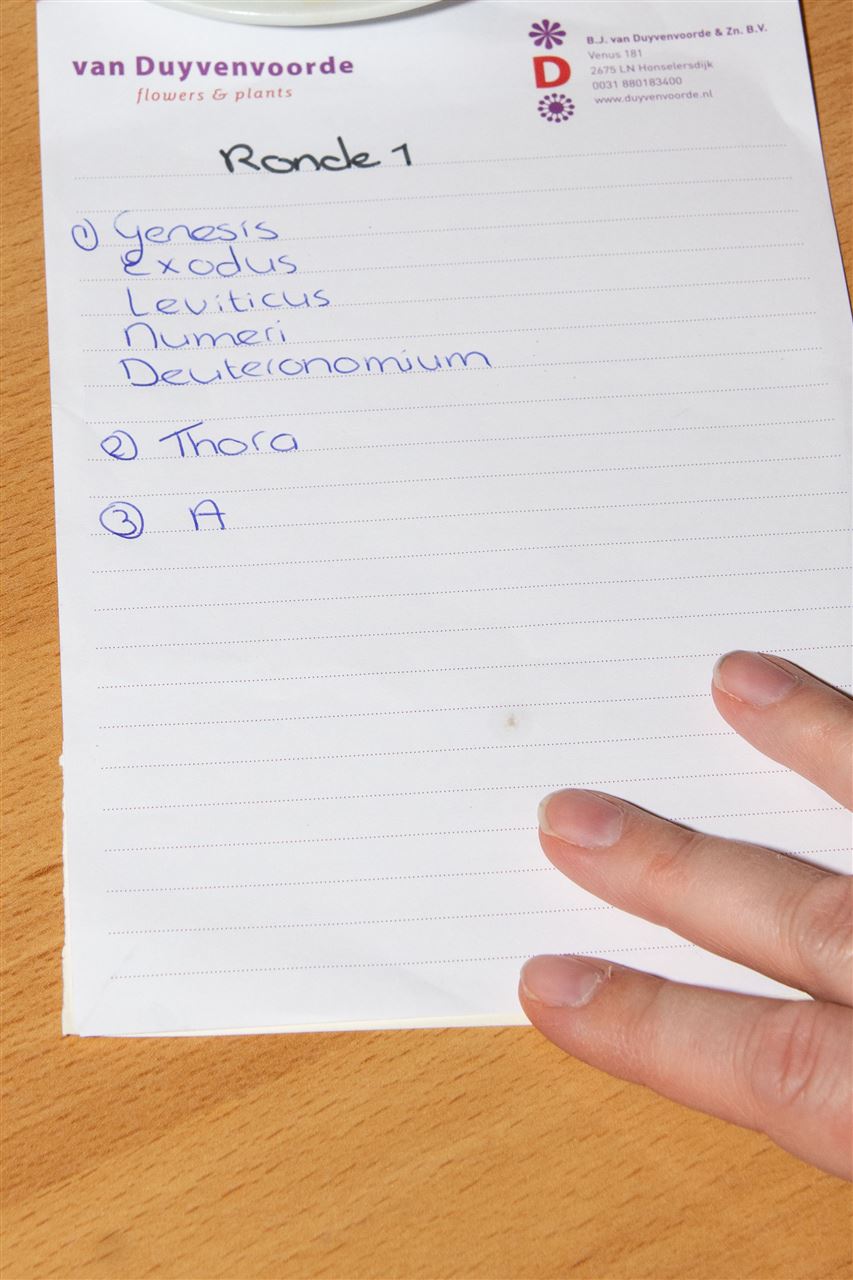 van Duyvenvoorde
flowers & plants
D
B.J. van Duyvenvoorde & Zn. B.V.
Venus 181
2675 LN Honselersdijk
0031 880183400
www.duyvenvoorde.nl
Ronde 1
① Genesis
Exodus
Leviticus
Numeri
Deuteronomium
② Thora
③ A